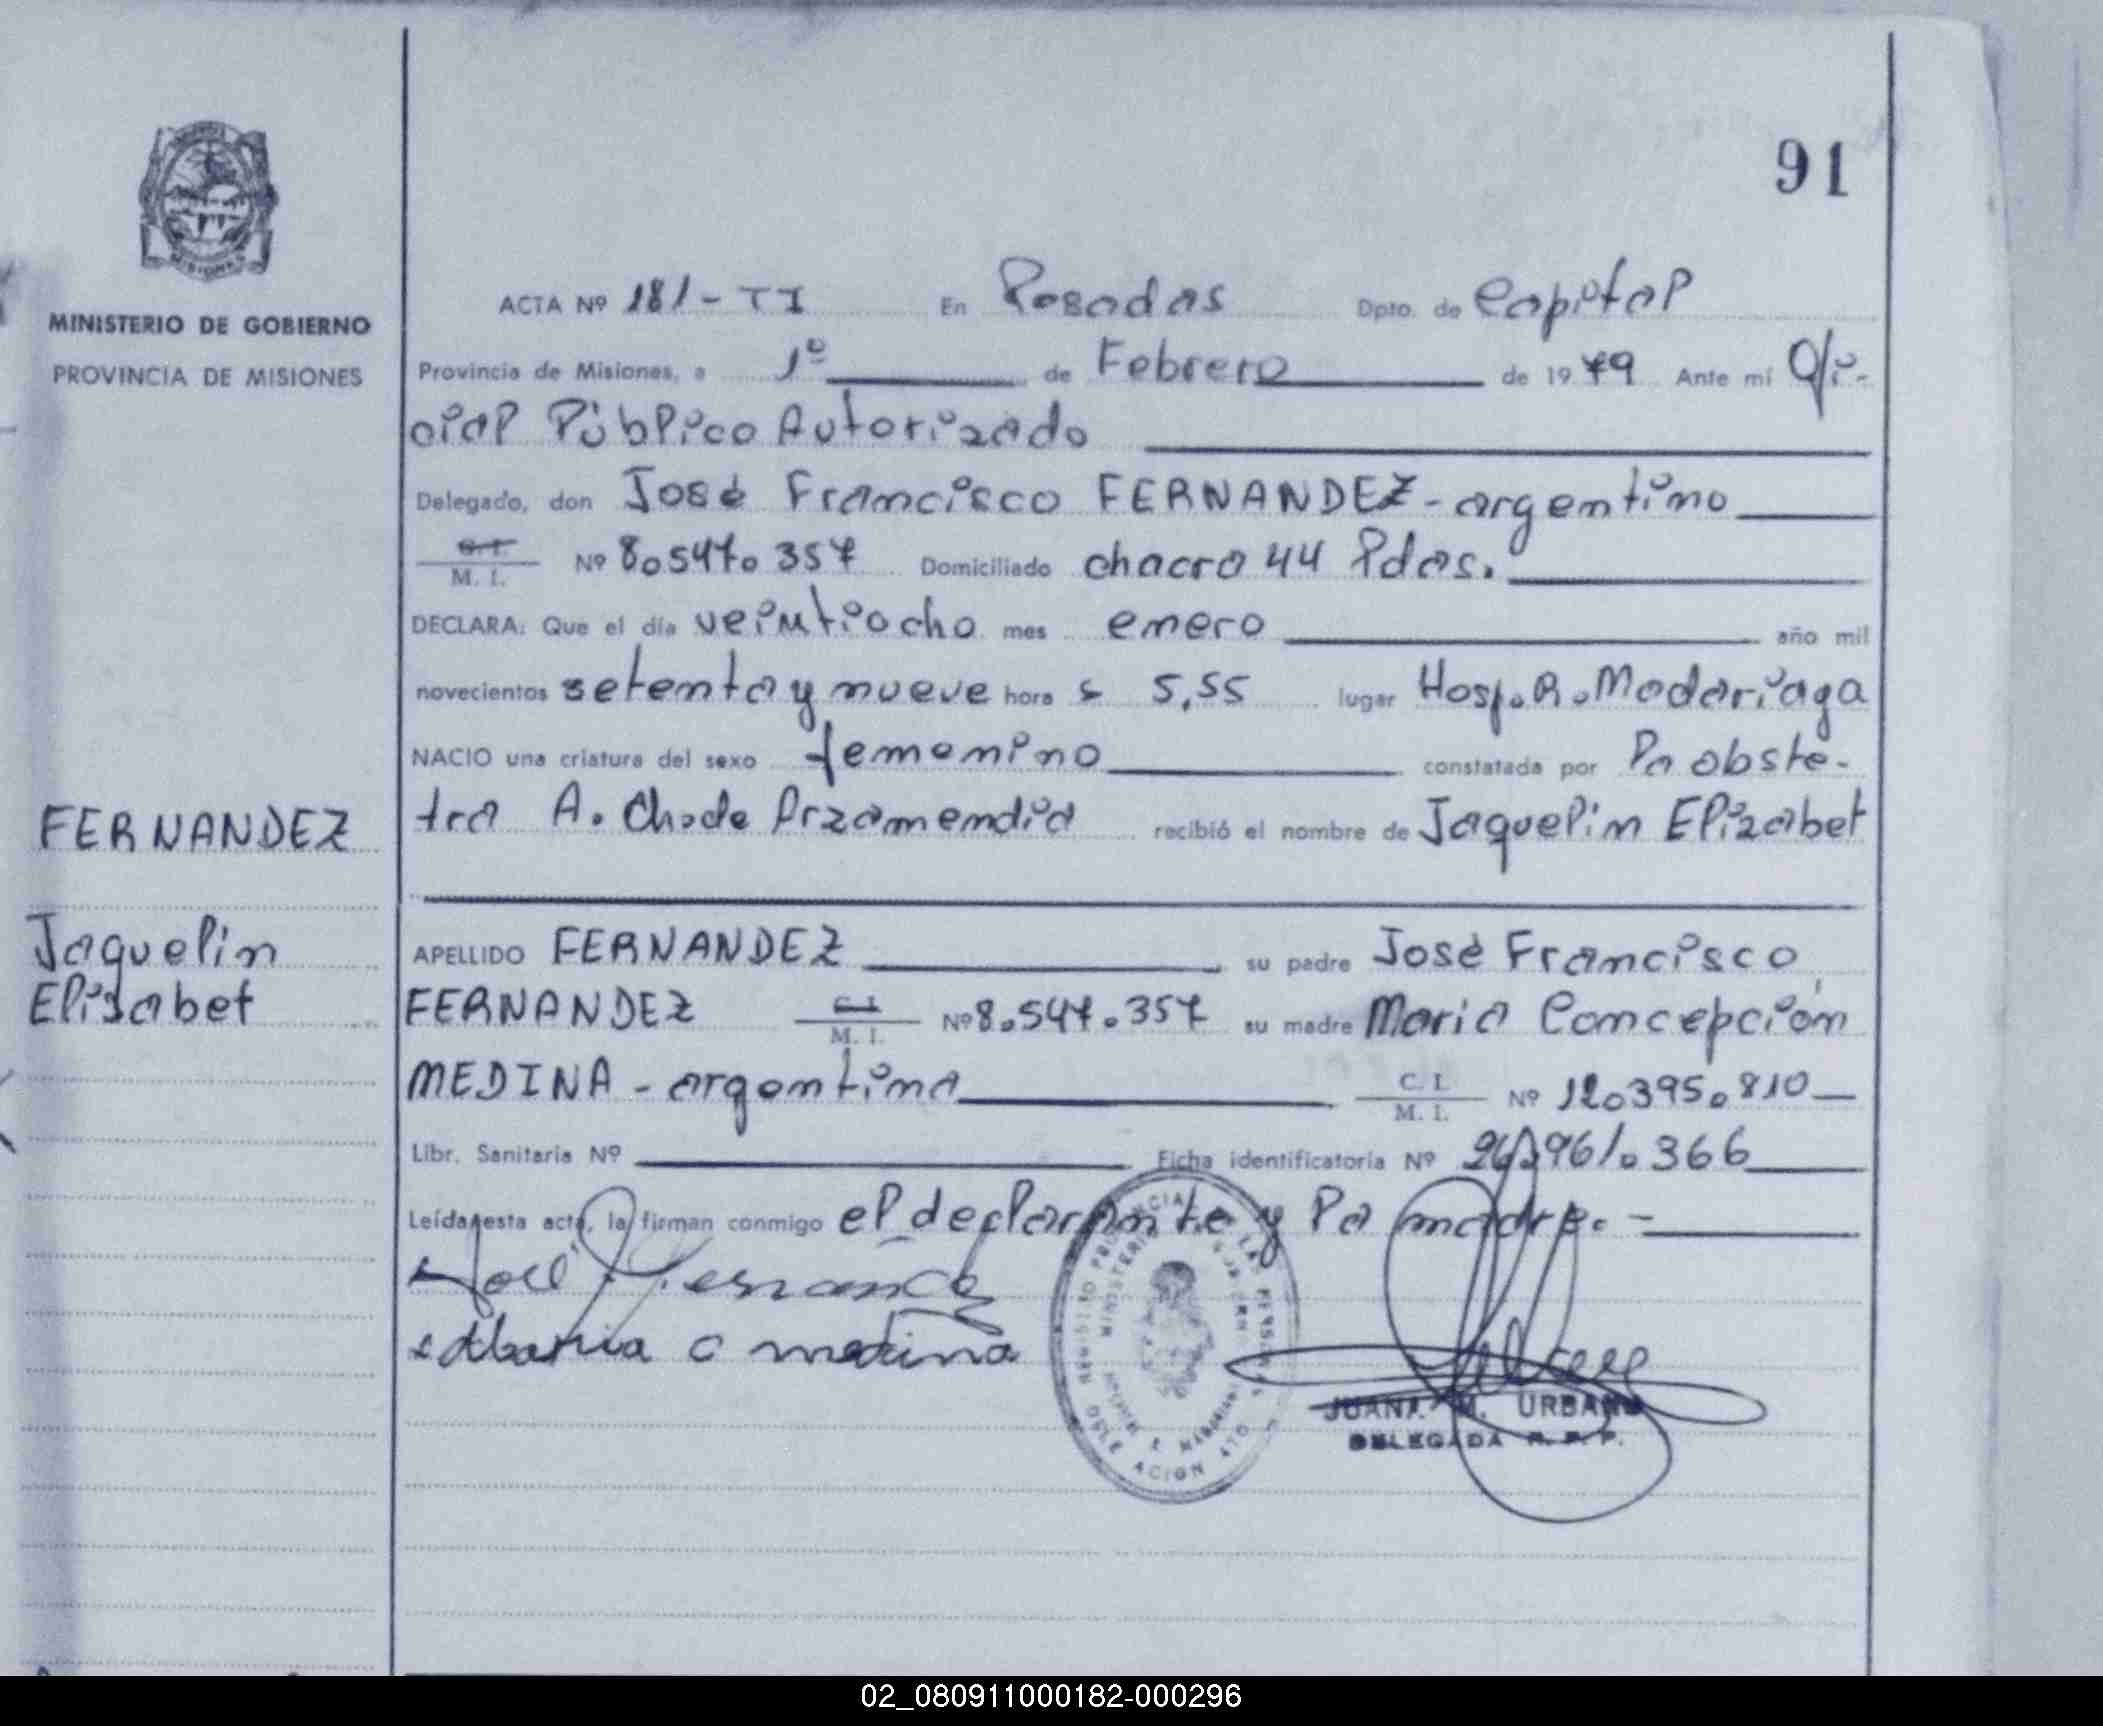 91
MISIONES
MINISTERIO DE GOBIERNO
PROVINCIA DE MISIONES
ACTA Nº 181-TI En Posadas Dpto. de Capital
Provincia de Misiones, a 1º de Febrero de 1979 Ante mí Ofi-
cial Público Autorizado
Delegado, don José Francisco FERNANDEZ - argentino
C.I. M. I. Nº 8.547.357 Domiciliado chacra 44 Pdas.
DECLARA: Que el día veintiocho mes enero año mil
novecientos setenta y nueve hora s 5,55 lugar Hosp. R. Madariaga
NACIO una criatura del sexo femenino constatada por la obste-
tra A. Ch. de Arzamendia recibió el nombre de Jaquelin Elizabet
FERNANDEZ
Jaquelin
Elisabet
APELLIDO FERNANDEZ su padre José Francisco
FERNANDEZ C.I. M. I. Nº 8.547.357 su madre María Concepción
MEDINA - argentina C. I. M. I. Nº 12.395.810
Libr. Sanitaria Nº Ficha identificatoria Nº 26.961.366
Leída esta acta, la firman conmigo el declarante y la madre. -
José Fernandez
Maria C medina
JUANA M. URBANO
DELEGADA R. P. P.
02_080911000182-000296